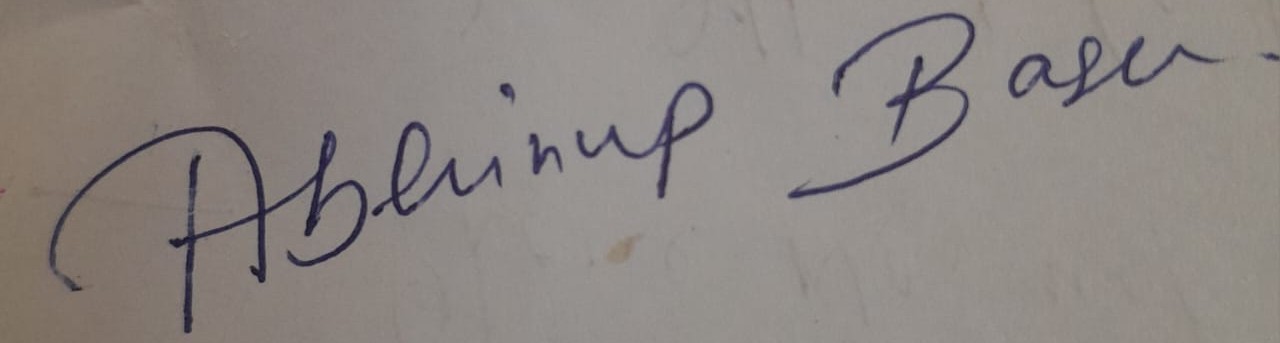 Abhinup Basu